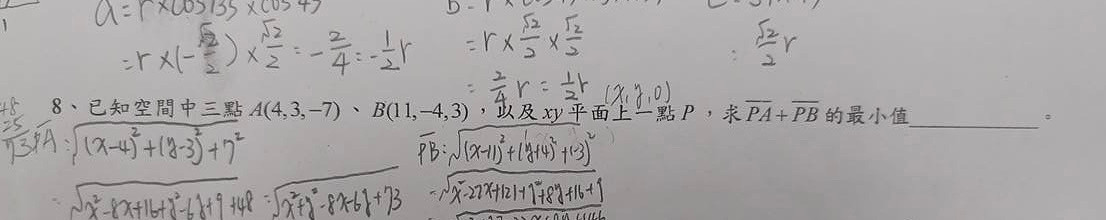 a = r × cos135 × cos45
= r × (-√2/2) × √2/2 = -2/4 = -1/2 r
= r × √2/2 × √2/2
= 2/4 r = 1/2 r
= √2/2 r
(x, y, 0)
8、已知空間中三點 A(4,3,−7)、B(11,−4,3),以及 xy 平面上一點 P,求 PA + PB 的最小值____________。
PA = √(x-4)²+(y-3)²+7²
PB = √(x-11)²+(y+4)²+(-3)²
= √x²-8x+16+y²-6y+9+48 = √x²+y²-8x-6y+73
= √x²-22x+121+y²+8y+16+9